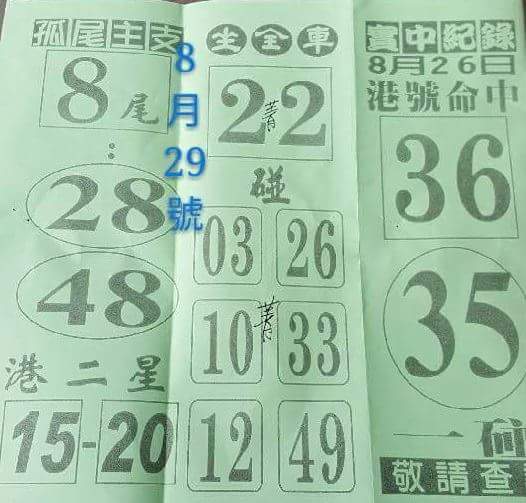 孤尾主支
8尾
:
28
48
港二星
15-20
8月29號
坐全車
22
菁
碰
03 26
10 33
菁
12 49
實中紀錄
8月26日
港號命中
36
35
一碰
敬請查